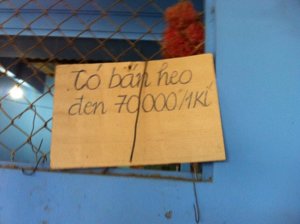 Có bán heo
đen 70000/1Kí